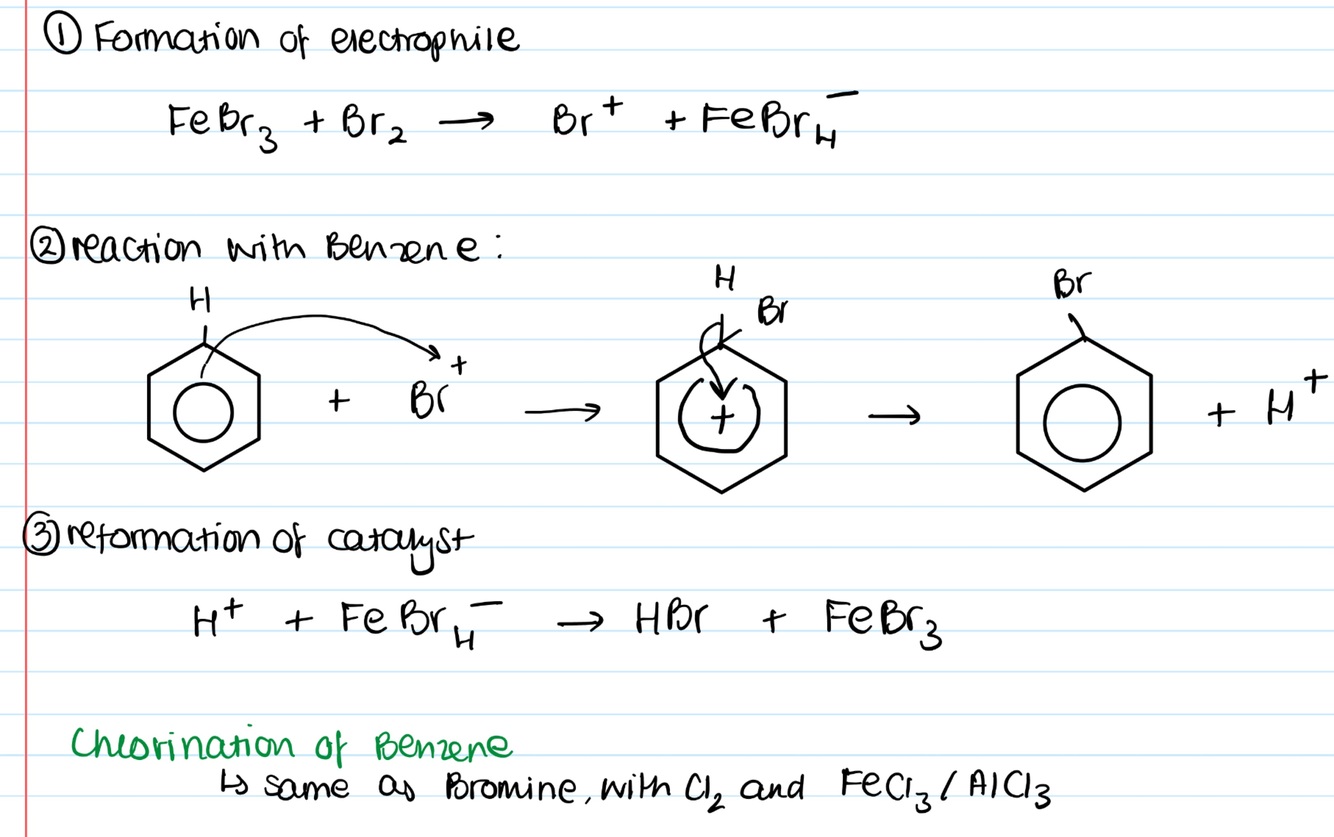 ① Formation of electrophile
FeBr₃ + Br₂ → Br⁺ + FeBr₄⁻
② reaction with Benzene :
H H Br Br
+ Br⁺ → + → + H⁺
③ reformation of catalyst
H⁺ + FeBr₄⁻ → HBr + FeBr₃
Chlorination of Benzene
↳ same as Bromine, with Cl₂ and FeCl₃ / AlCl₃